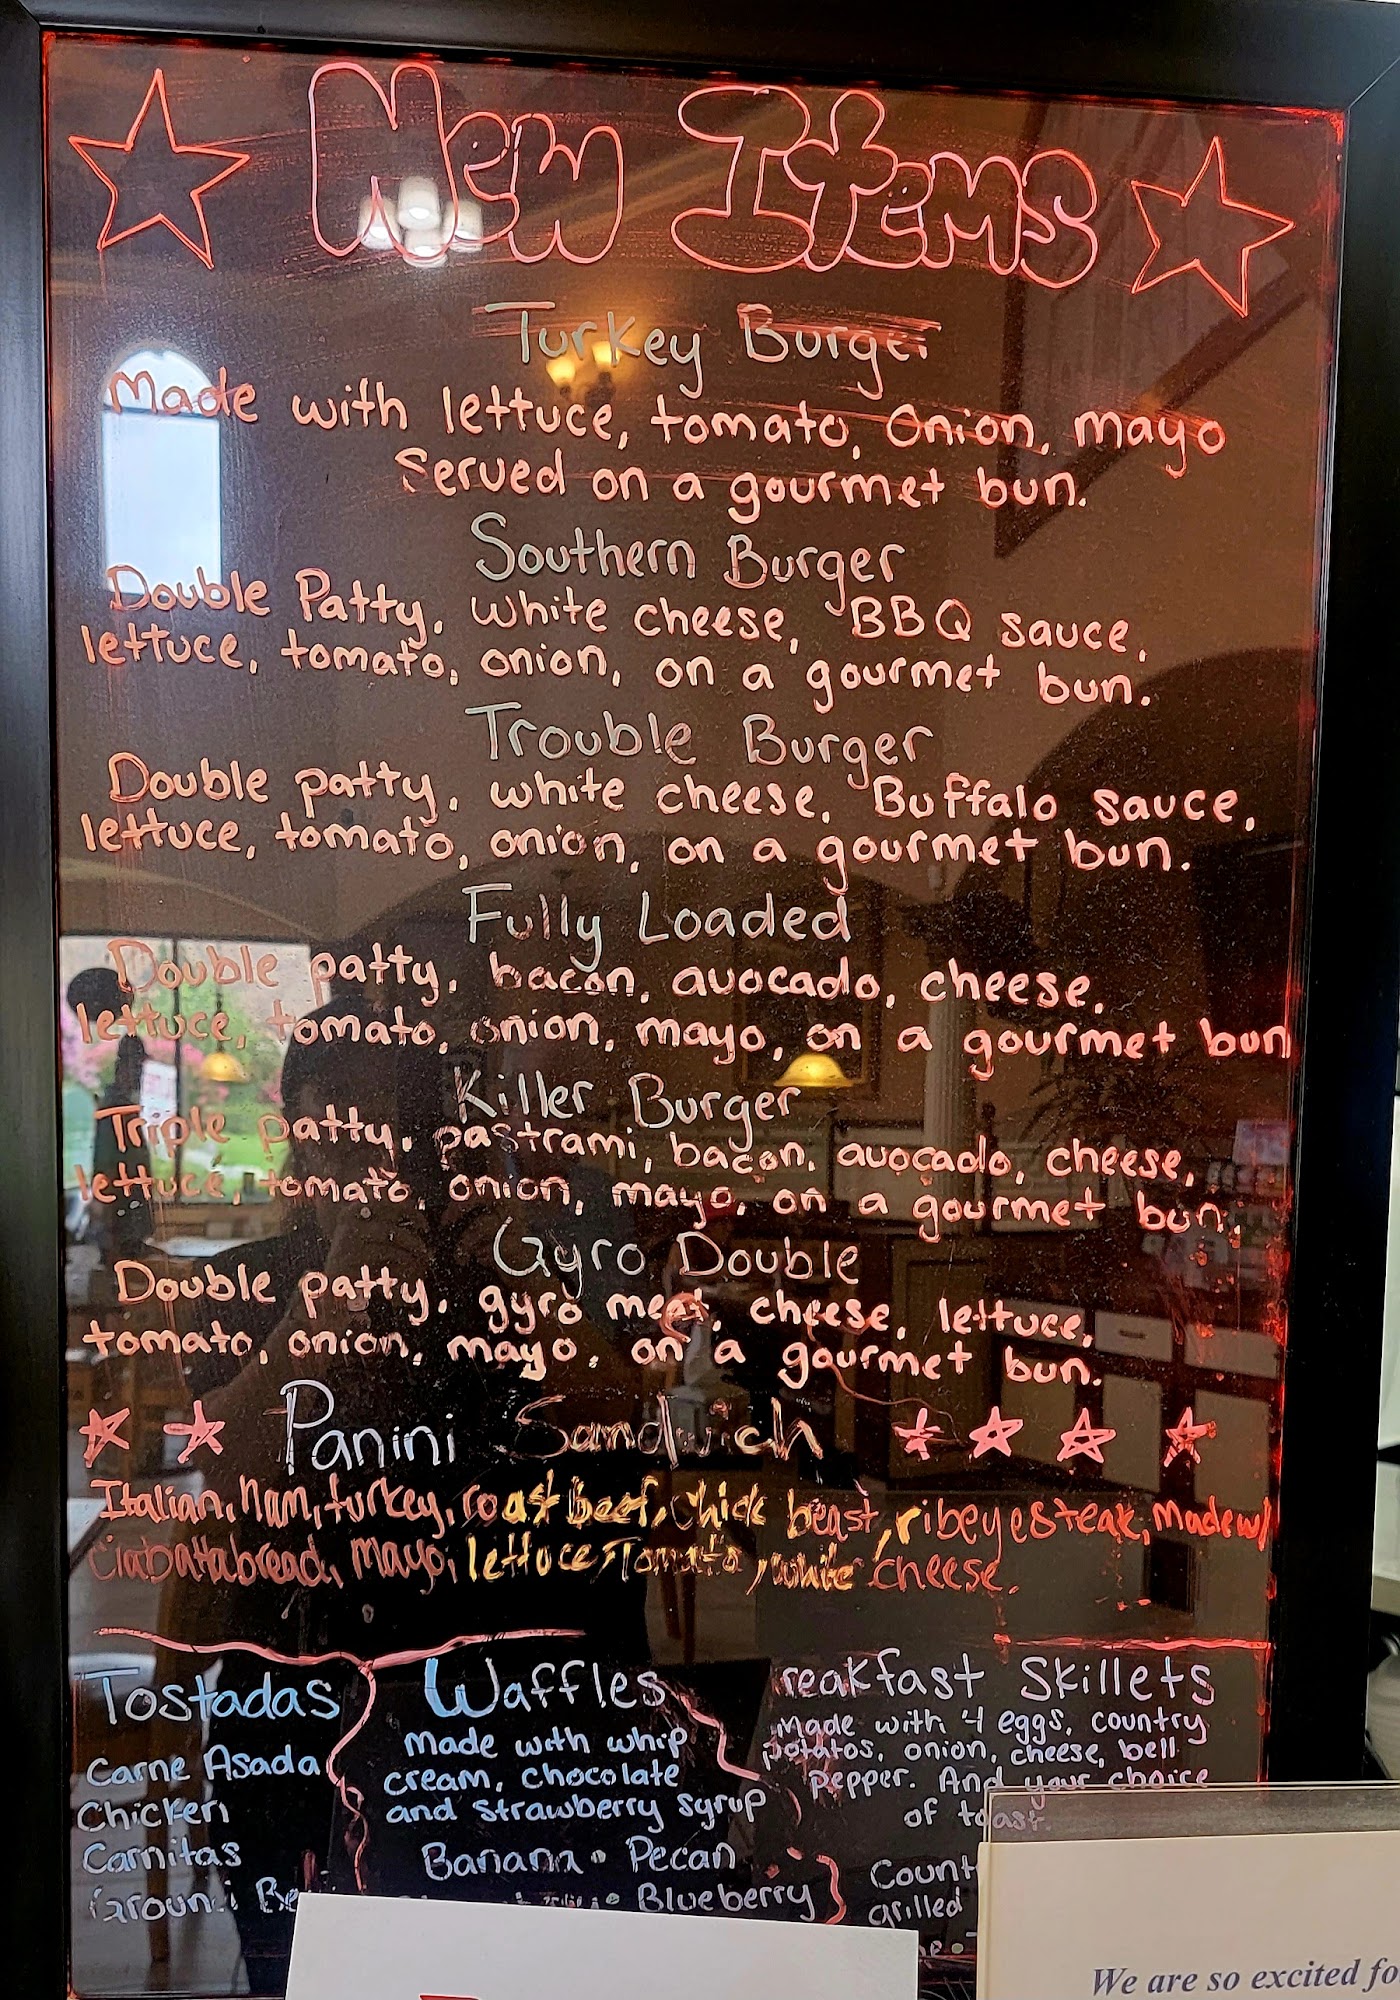 New Items
Turkey Burger
Made with lettuce, tomato, Onion, mayo
Served on a gourmet bun.
Southern Burger
Double Patty, white cheese, BBQ sauce,
lettuce, tomato, onion, on a gourmet bun.
Trouble Burger
Double patty, white cheese, Buffalo sauce,
lettuce, tomato, onion, on a gourmet bun.
Fully Loaded
Double patty, bacon, avocado, cheese,
lettuce, tomato, onion, mayo, on a gourmet bun
Killer Burger
Triple patty, pastrami, bacon, avocado, cheese,
lettuce, tomato, onion, mayo, on a gourmet bun.
Gyro Double
Double patty, gyro meat, cheese, lettuce,
tomato, onion, mayo, on a gourmet bun.
Panini Sandwich
Italian, Ham, turkey, roast beef, chick breast, ribeye steak, Made w/
Ciabatta bread, Mayo, lettuce, Tomato, white cheese.
Tostadas
Carne Asada
Chicken
Carnitas
Ground
Waffles
made with whip
cream, chocolate
and strawberry syrup
Banana • Pecan
• Blueberry
reakfast Skillets
Made with 4 eggs, country
potatos, onion, cheese, bell
pepper. And your choice
of toast.
grilled
We are so excited fo